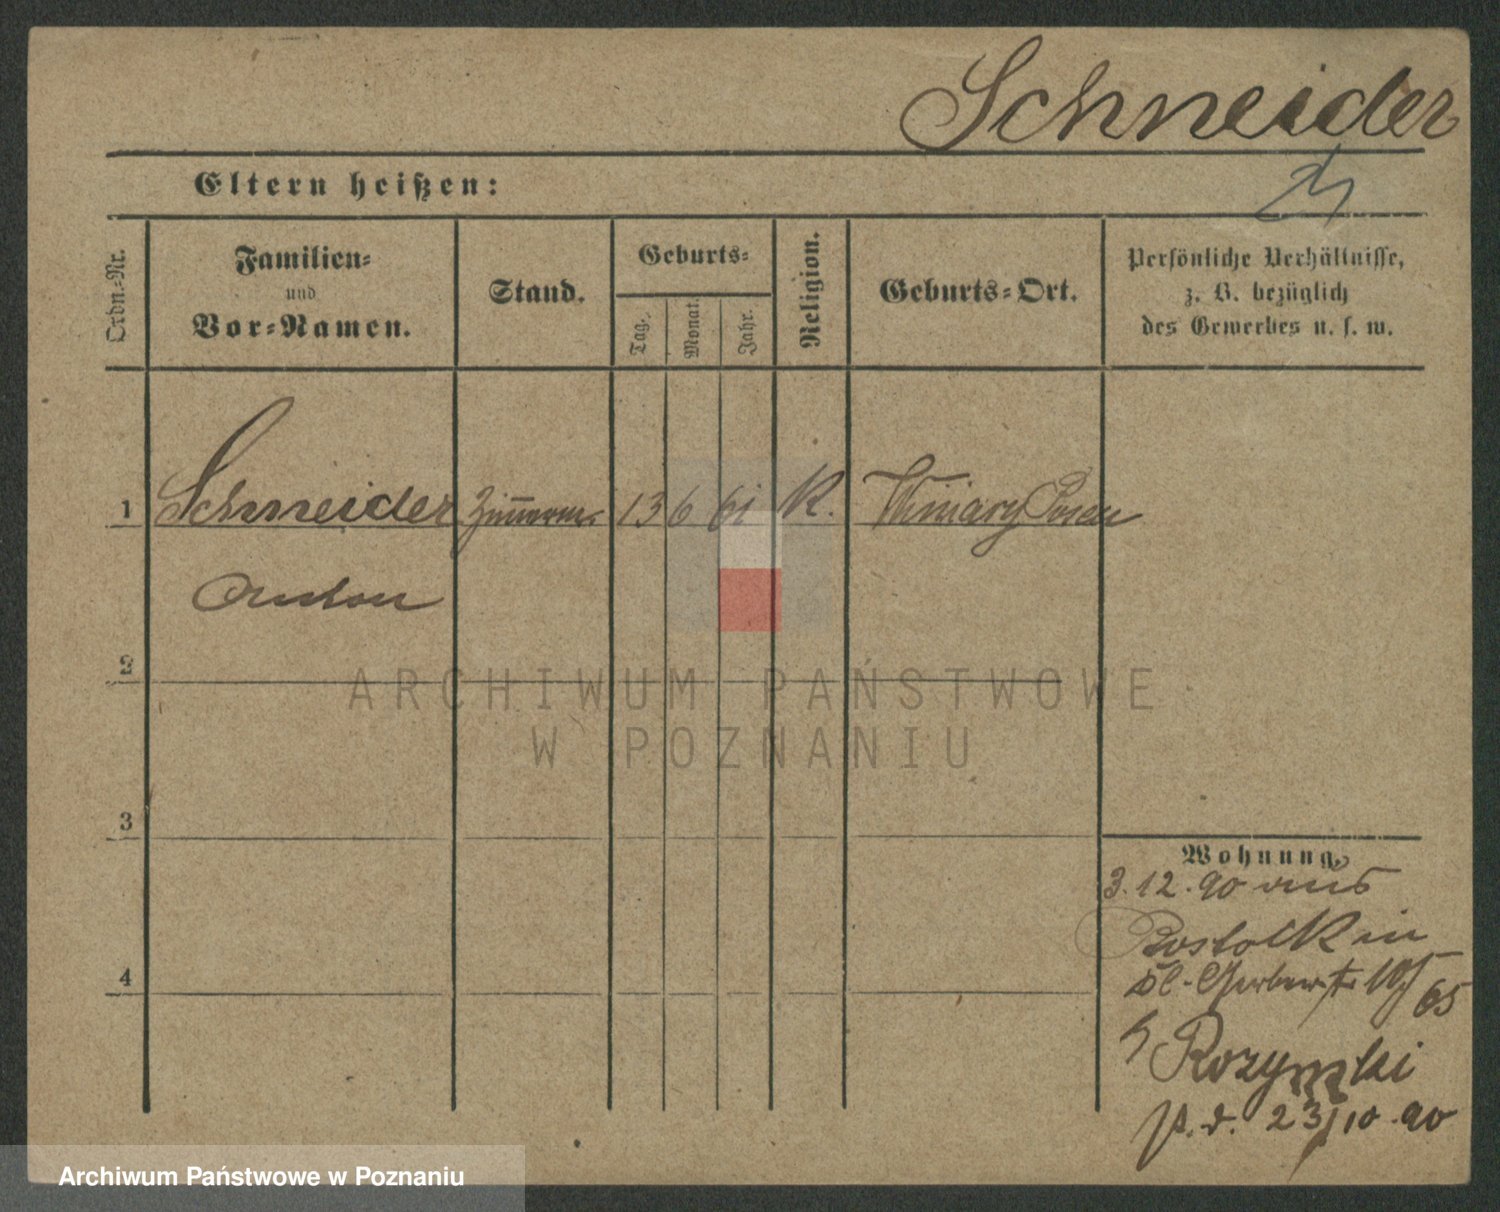 Schneider
Eltern heißen:
Ordn.-Nr.
Familien-
und
Vor-Namen.
Stand.
Geburts-
Tag.
Monat.
Jahr.
Religion.
Geburts-Ort.
Persönliche Verhältnisse,
z. B. bezüglich
des Gewerbes u. s. w.
1 Schneider Zimmerm. 13 6 61 K. Winiary Posen
Anton
2
3
4
Wohnung
3.12.90 aus
in
Gerberstr 65
p. d. 23/10.90
ARCHIWUM PAŃSTWOWE
W POZNANIU
Archiwum Państwowe w Poznaniu